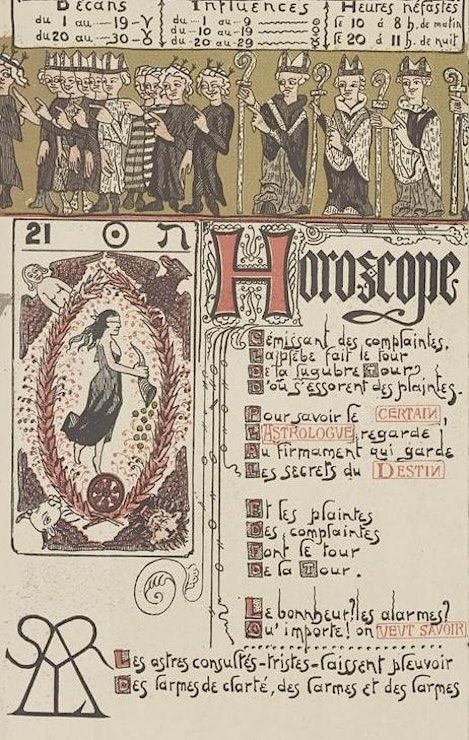 Décans Influences Heures néfastes
du 1 au 19 - ♈ du 1 au 9 ☉ le 10 à 8 h. de matin
du 20 au 30 - ♉ du 10 au 19 le 20 à 11 h. de nuit
du 20 au 29
21 ☉ ת
Horoscope
Gémissant des complaintes,
La plèbe fait le tour
De la lugubre Tour,
D'où s'essorent des plaintes.
Pour savoir le CERTAIN,
L'ASTROLOGUE regarde
Au firmament qui garde
Les secrets du DESTIN
Et les plaintes
Des complaintes
Font le tour
De la Tour.
Le bonheur? les alarmes?
Qu'importe! on VEUT SAVOIR
Les astres consultés-tristes-laissent pleuvoir
Des larmes de clarté, des larmes et des larmes